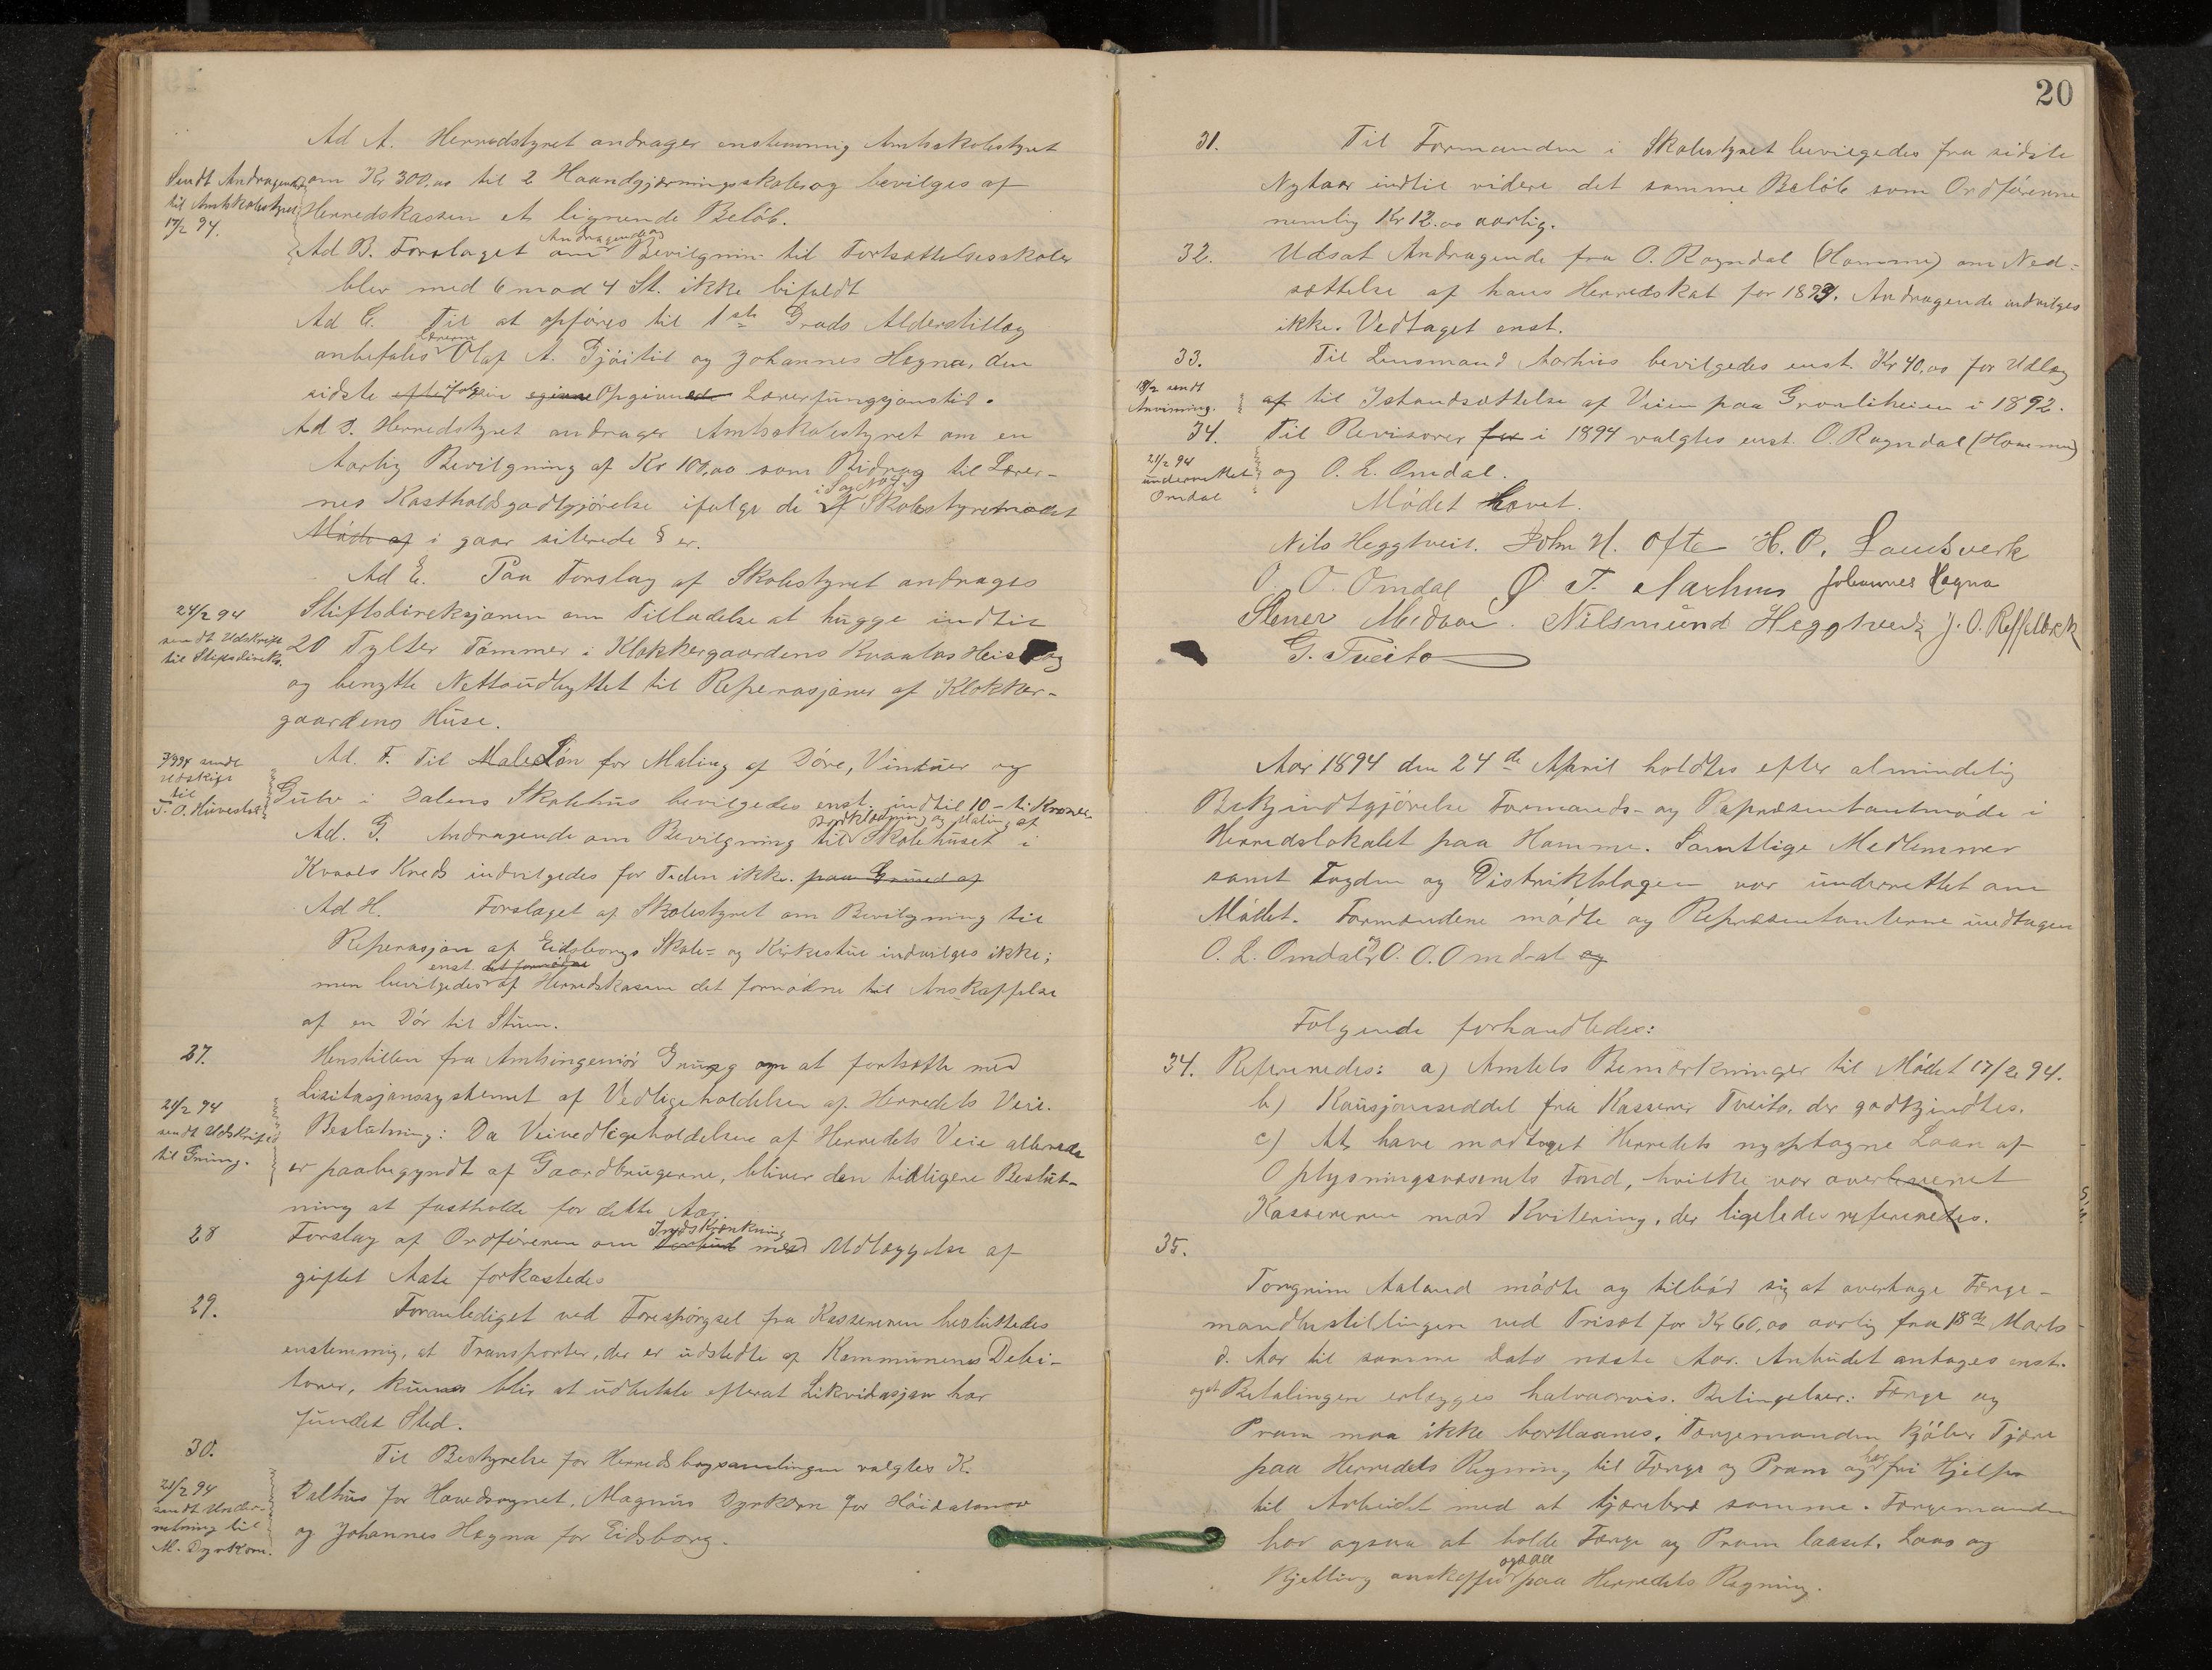 Ad A. Herredstyret andrager enstemmig Amtsskolestyret
Sendt Andragende
til Amtskolestyret
17/2 94.
om Kr 300,00 til 2 Haandgjærningsskoler og bevilges af
Herredskassen et lignende Beløb.
Andragende og
Ad B. Forslaget om Bevilgnin til Fortsættelsesskoler
blev med 6 mod 4 St. ikke bifaldt
Ad C. Til at opføres til 1ste Grads Alderstillæg
Lærerne
anbefales Olaf A. Gjøitil og Johannes Hægna, den
sidste efter ifølge sin egivne Opgivne Lærerfungsjonstid.
Ad D. Herredstyret andrager Amtsskolestyret om en
Aarlig Bevilgning af Kr 108,00 som Bidrag til Lærer-
i Sag No 2
nes Kostholdsgodtgjørelse ifølge de af Skolestyremødet
Møde af i gaar siterede § er.
Ad E. Paa Forslag af Skolestyret andrages
24/2 94
sendt Udskrift
til Stiftsdireks.
Stiftsdireksjonen om Tilladelse at hugge indtil
20 Tylter Tømmer i Klokkergaardens Kvaalas Heiskog
og benytte Nettoudbyttet til Reperasjoner af Klokker-
gaardens Huse.
sendt
Udskrift
til
T. O. Huvestad
Ad. F. Til Maleløn for Maling af Døre, Vinduer og
Gulv i Dalens Skolehus bevilgedes enst. indtil 10 - ti Kroner.
Bordklædning og Maling af
Ad. G. Andragende om Bevilgning til Skolehuset i
Kvaals Kreds indvilgedes for Tiden ikke. paa Grund af
Ad H. Forslaget af Skolestyret om Bevilgning til
Reperasjon af Eidsborgs Skole= og Kirkestue indvilges ikke;
enst. det fornødne
men bevilgedes af Herredskassen det fornødne til Anskaffelse
af en Dør til Stuen.
27. Henstillen fra Amtsingeniør Grung om at fortsætte med
Lisitasjonssystemet af Vedligeholdelsen af Herredets Veie.
21/2 94
sendt Udskrift
til Grung.
Beslutning: Da Veivedligeholdelsen af Herredets Veie allerede
er paabegyndt af Gaardbrugerne, bliver den tidligere Beslut-
ning at fastholde for dette Aar
Indskrænkning
28 Forslag af Ordføreren om Forbud med Udlæggelse af
giftet Aate forkastedes
29. Foranlediget ved Forespørgsel fra Kassereren besluttedes
enstemmig, at Transporter, der er udstedte af Kommunenes Debi-
torer, kunas blir at udbetale efterat Likvidasjon har
fundet Sted.
30. Til Bestyrelse for Herredsbogsamlingen valgtes K.
21/2 94
sendt Under-
retning til
M. Dyrkorn.
Dalhus for Hovedsognet, Magnus Dyrkorn for Høidalsmo
og Johannes Hægna for Eidsborg.
20
31. Til Formanden i Skolestyret bevilgedes fra sidste
Nytaar indtil videre det samme Beløb som Ordførerne
nemlig Kr 12.00 aarlig.
32. Udsat Andragende fra O. Rogndal (Homme) om Ned=
sættelse af hans Herredskat for 1893. Andragende indvilges
ikke. Vedtaget enst.
33. Til Lensmand Aarhus bevilgedes enst. Kr 40,00 for Udlæg
18/2 sendt
Anvisning.
af til Istandsættelse af Veien paa Gronliheien i 1892.
34. Til Revisorer for i 1894 valgtes enst. O. Rogndal (Homme)
21/2 94
underrettet
Omdal
og O. L. Omdal.
Mødet hævet.
Nils Heggtveit. John H. Ofte H. O. Landsverk
O. O. Omdal Ø. T. Aarhus Johannes Hægna
Stener Midbøe. Nilsmund Heggtveit J. O. Roffelbæk
G. Tveito
Aar 1894 den 24de April holdtes efter almindelig
Bekjendtgjørelse Formands- og Repræsentantmøde i
Herredslokalet paa Homme. Samtlige Medlemmer
samt Fogden og Distriktslægen var underrettet om
Mødet. Formændene mødte og Repræsentanterne undtagen
O. L. Omdal og O. O. Omdal og
Følgende forhandledes:
34. Refereredes: a) Amtets Bemærkninger til Mødet 17/2 94.
b) Kausjonsseddel fra Kasserer Tveito, der godkjendtes.
c) At have modtaget Herredets nyoptagne Laan af
Oplysningsvæsenets Fond, hvilke var overleveret
Kassereren mod Kvitering, der ligeledes refereredes.
35.
Torgrim Aaland mødte og tilbød sig at overtage Færge-
mandbestillingen ved Trisæt for Kr 60,00 aarlig fra 18de Marts
d. Aar til samme Dato næste Aar. Anbudet antages enst.
og at Betalingen erlægges halvaarvis. Betingelser: Færge og
Pram maa ikke bortlaanes, Færgemanden kjøber Tjære
har
paa Herredets Regning til Færge og Pram og fri Hjelp
til Arbeidet med at tjærebræ samme. Færgemanden
har ogsaa at holde Færge og Pram laaset. Laas og
ogsaa
Kjetting anskaffes paa Herredets Regning.